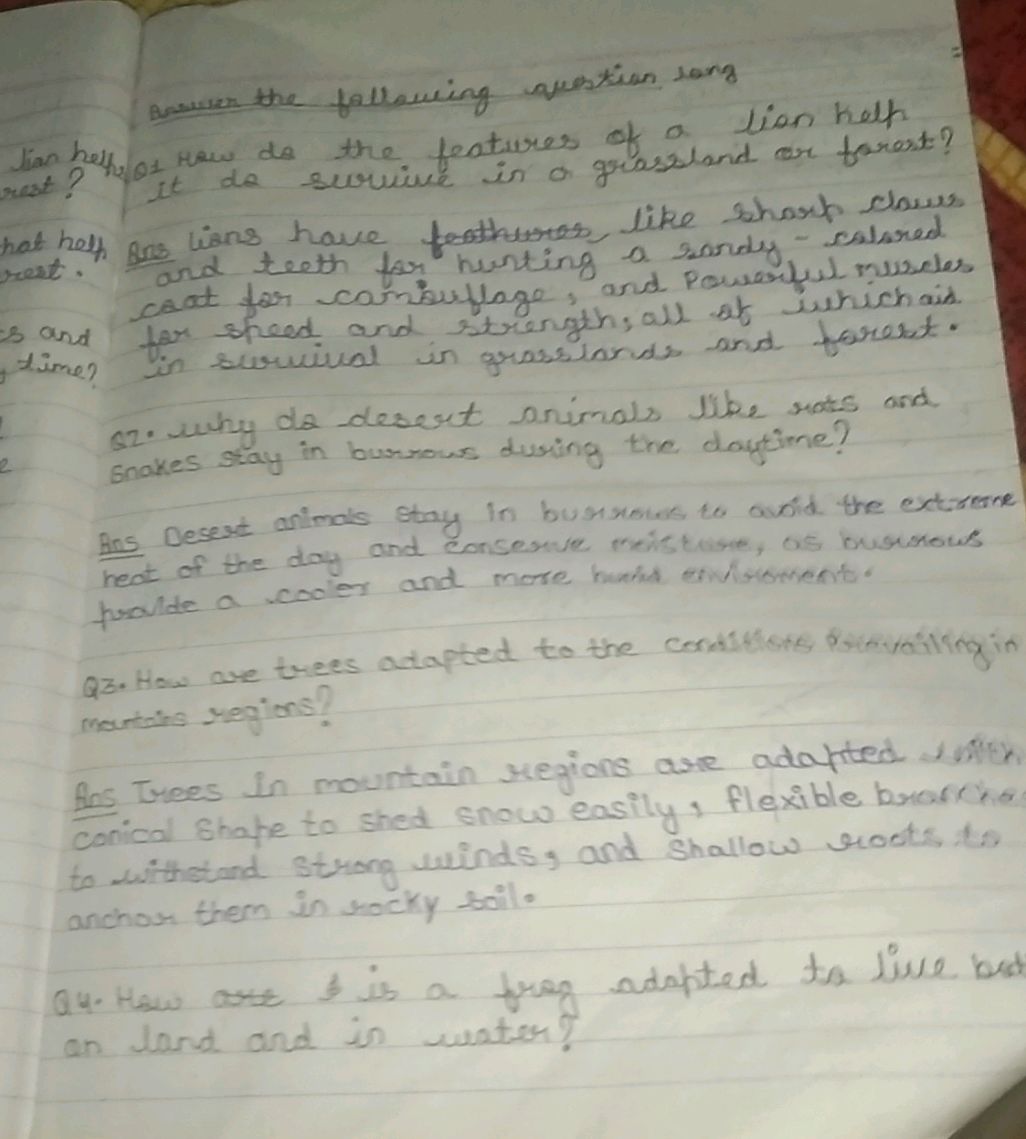 Answer the following question long
lian help
rest?
Q1 How do the features of a lian help
it do survive in a grassland or forest?
hat help
rest.
Ans lions have feathures like sharp claws
and teeth for hunting a sandy - colored
coat for cambuflage, and Powerful muscles
s and
time?
for speed and strength, all of which aid
in survival in grasslands and forest.
Q2. Why do desert animals like rats and
Snakes stay in burrows during the daytime?
Ans Desert animals stay in burrows to avoid the extreme
heat of the day and conserve moisture, as burrows
provide a cooler and more humid enviroment.
Q3. How are trees adapted to the conditions Prevailing in
mountains regions?
Ans Trees in mountain regions are adapted with
conical Shape to shed snow easily, flexible branche
to withstand strong winds, and shallow roots to
anchor them in rocky soil.
Q4. How is a frog adapted to live
on land and in water?